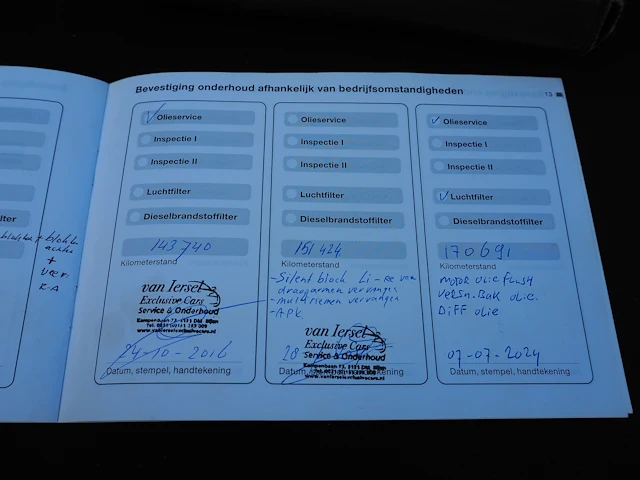 Bevestiging onderhoud afhankelijk van bedrijfsomstandigheden
13
Olieservice
Inspectie I
Inspectie II
Luchtfilter
Dieselbrandstoffilter
143740
Kilometerstand
van Iersel
Exclusive Cars
Service & Onderhoud
24-10-2016
Datum, stempel, handtekening
Olieservice
Inspectie I
Inspectie II
Luchtfilter
Dieselbrandstoffilter
151424
Kilometerstand
- Silent block Li - Re van
draagarmen vervangen
- multiriemen vervangen
- APK
van Iersel
Exclusive Cars
Service & Onderhoud
28
Datum
handtekening
Olieservice
Inspectie I
Inspectie II
Luchtfilter
Dieselbrandstoffilter
170691
Kilometerstand
MOTOR OLIE FLUSH
VERSN. BAK OLIE.
DIFF OLIE
07-07-2024
Datum, stempel, handtekening
lter
+